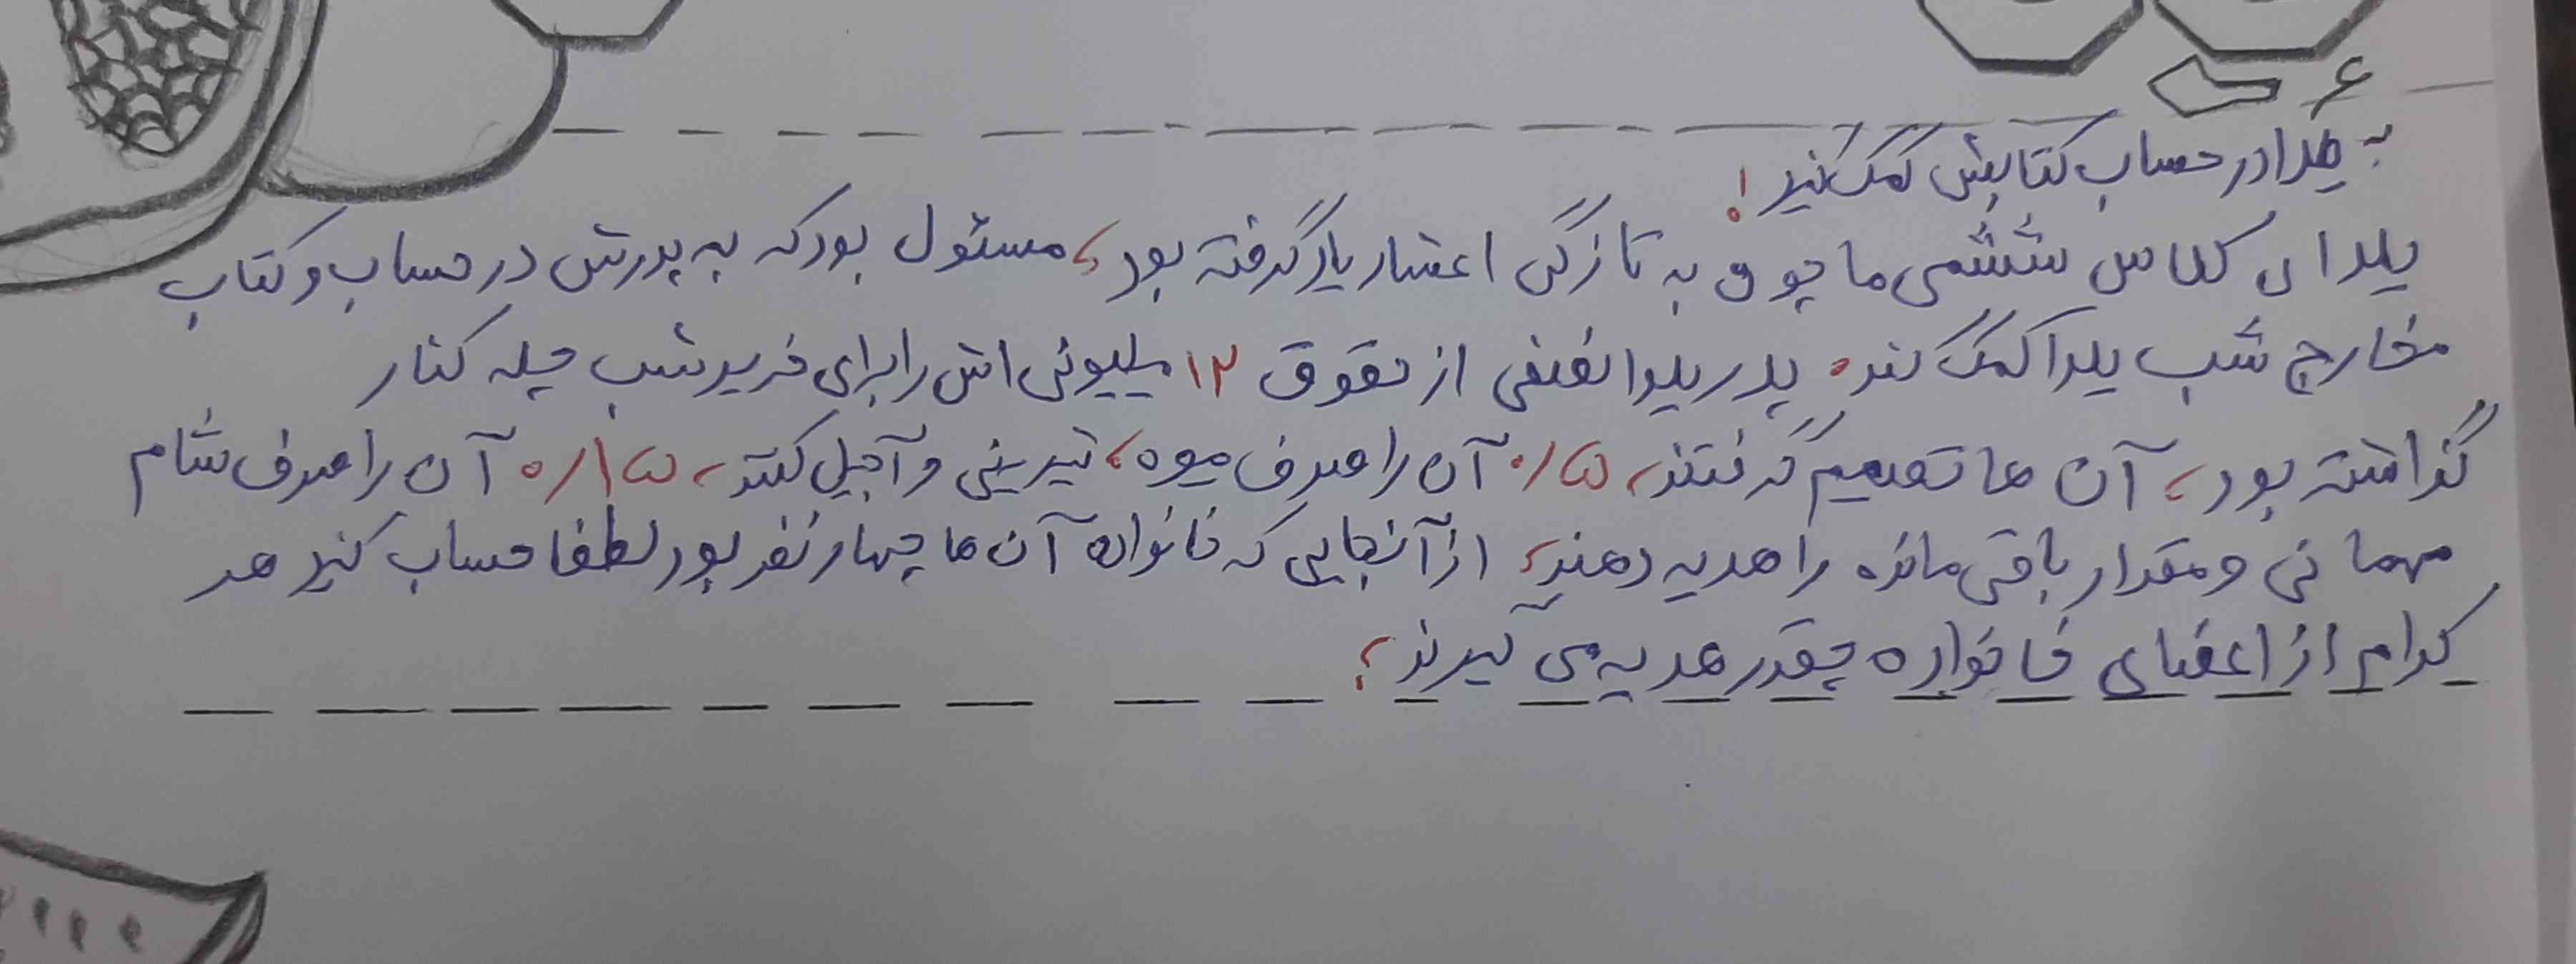 ۶
به یلدا در حساب کتابش کمک کنید!
یلدا ی کلاس ششمی ما چون به تازگی اعشار یاد گرفته بود، مسئول بود که به پدرش در حساب و کتاب
مخارج شب یلدا کمک کند. پدر یلدا نصفی از حقوق ۱۲ میلیونی اش را برای خرید شب چله کنار
گذاشته بود، آن ها تصمیم گرفتند، ۰/۵ آن را صرف میوه، شیرینی و آجیل کنند، ۰/۱۵ آن را صرف شام
مهمانی و مقدار باقی مانده را هدیه دهند، از آنجایی که خانواده آن ها چهار نفر بود لطفا حساب کنید هر
کدام از اعضای خانواده چقدر هدیه می گیرند؟